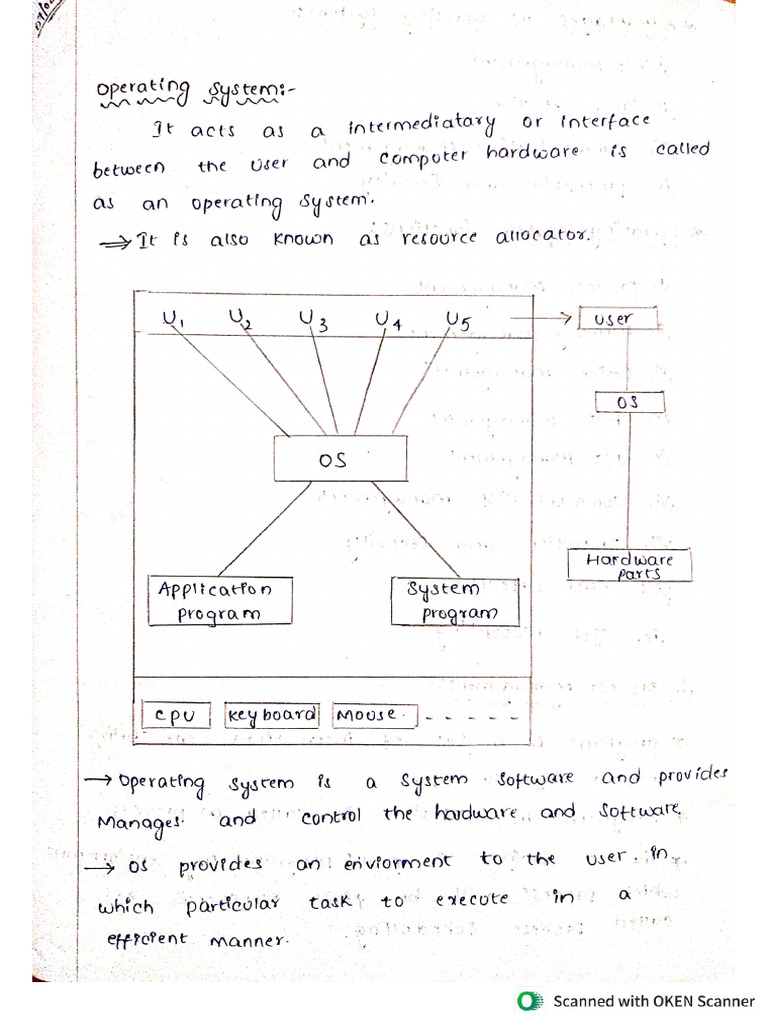 Operating System:-
It acts as a intermediatary or interface
between the user and computer hardware is called
as an operating System.
⇒ It is also known as resource allocator.
U1 U2 U3 U4 U5 → user
OS
OS
Hardware
parts
Application
program
System
program
CPU keyboard Mouse. - - - - -
→ Operating System is a System software and provides
Manages and control the hardware and Software.
→ OS provides an enviorment to the user in
which particular task to execute in a
efficient manner.
Scanned with OKEN Scanner